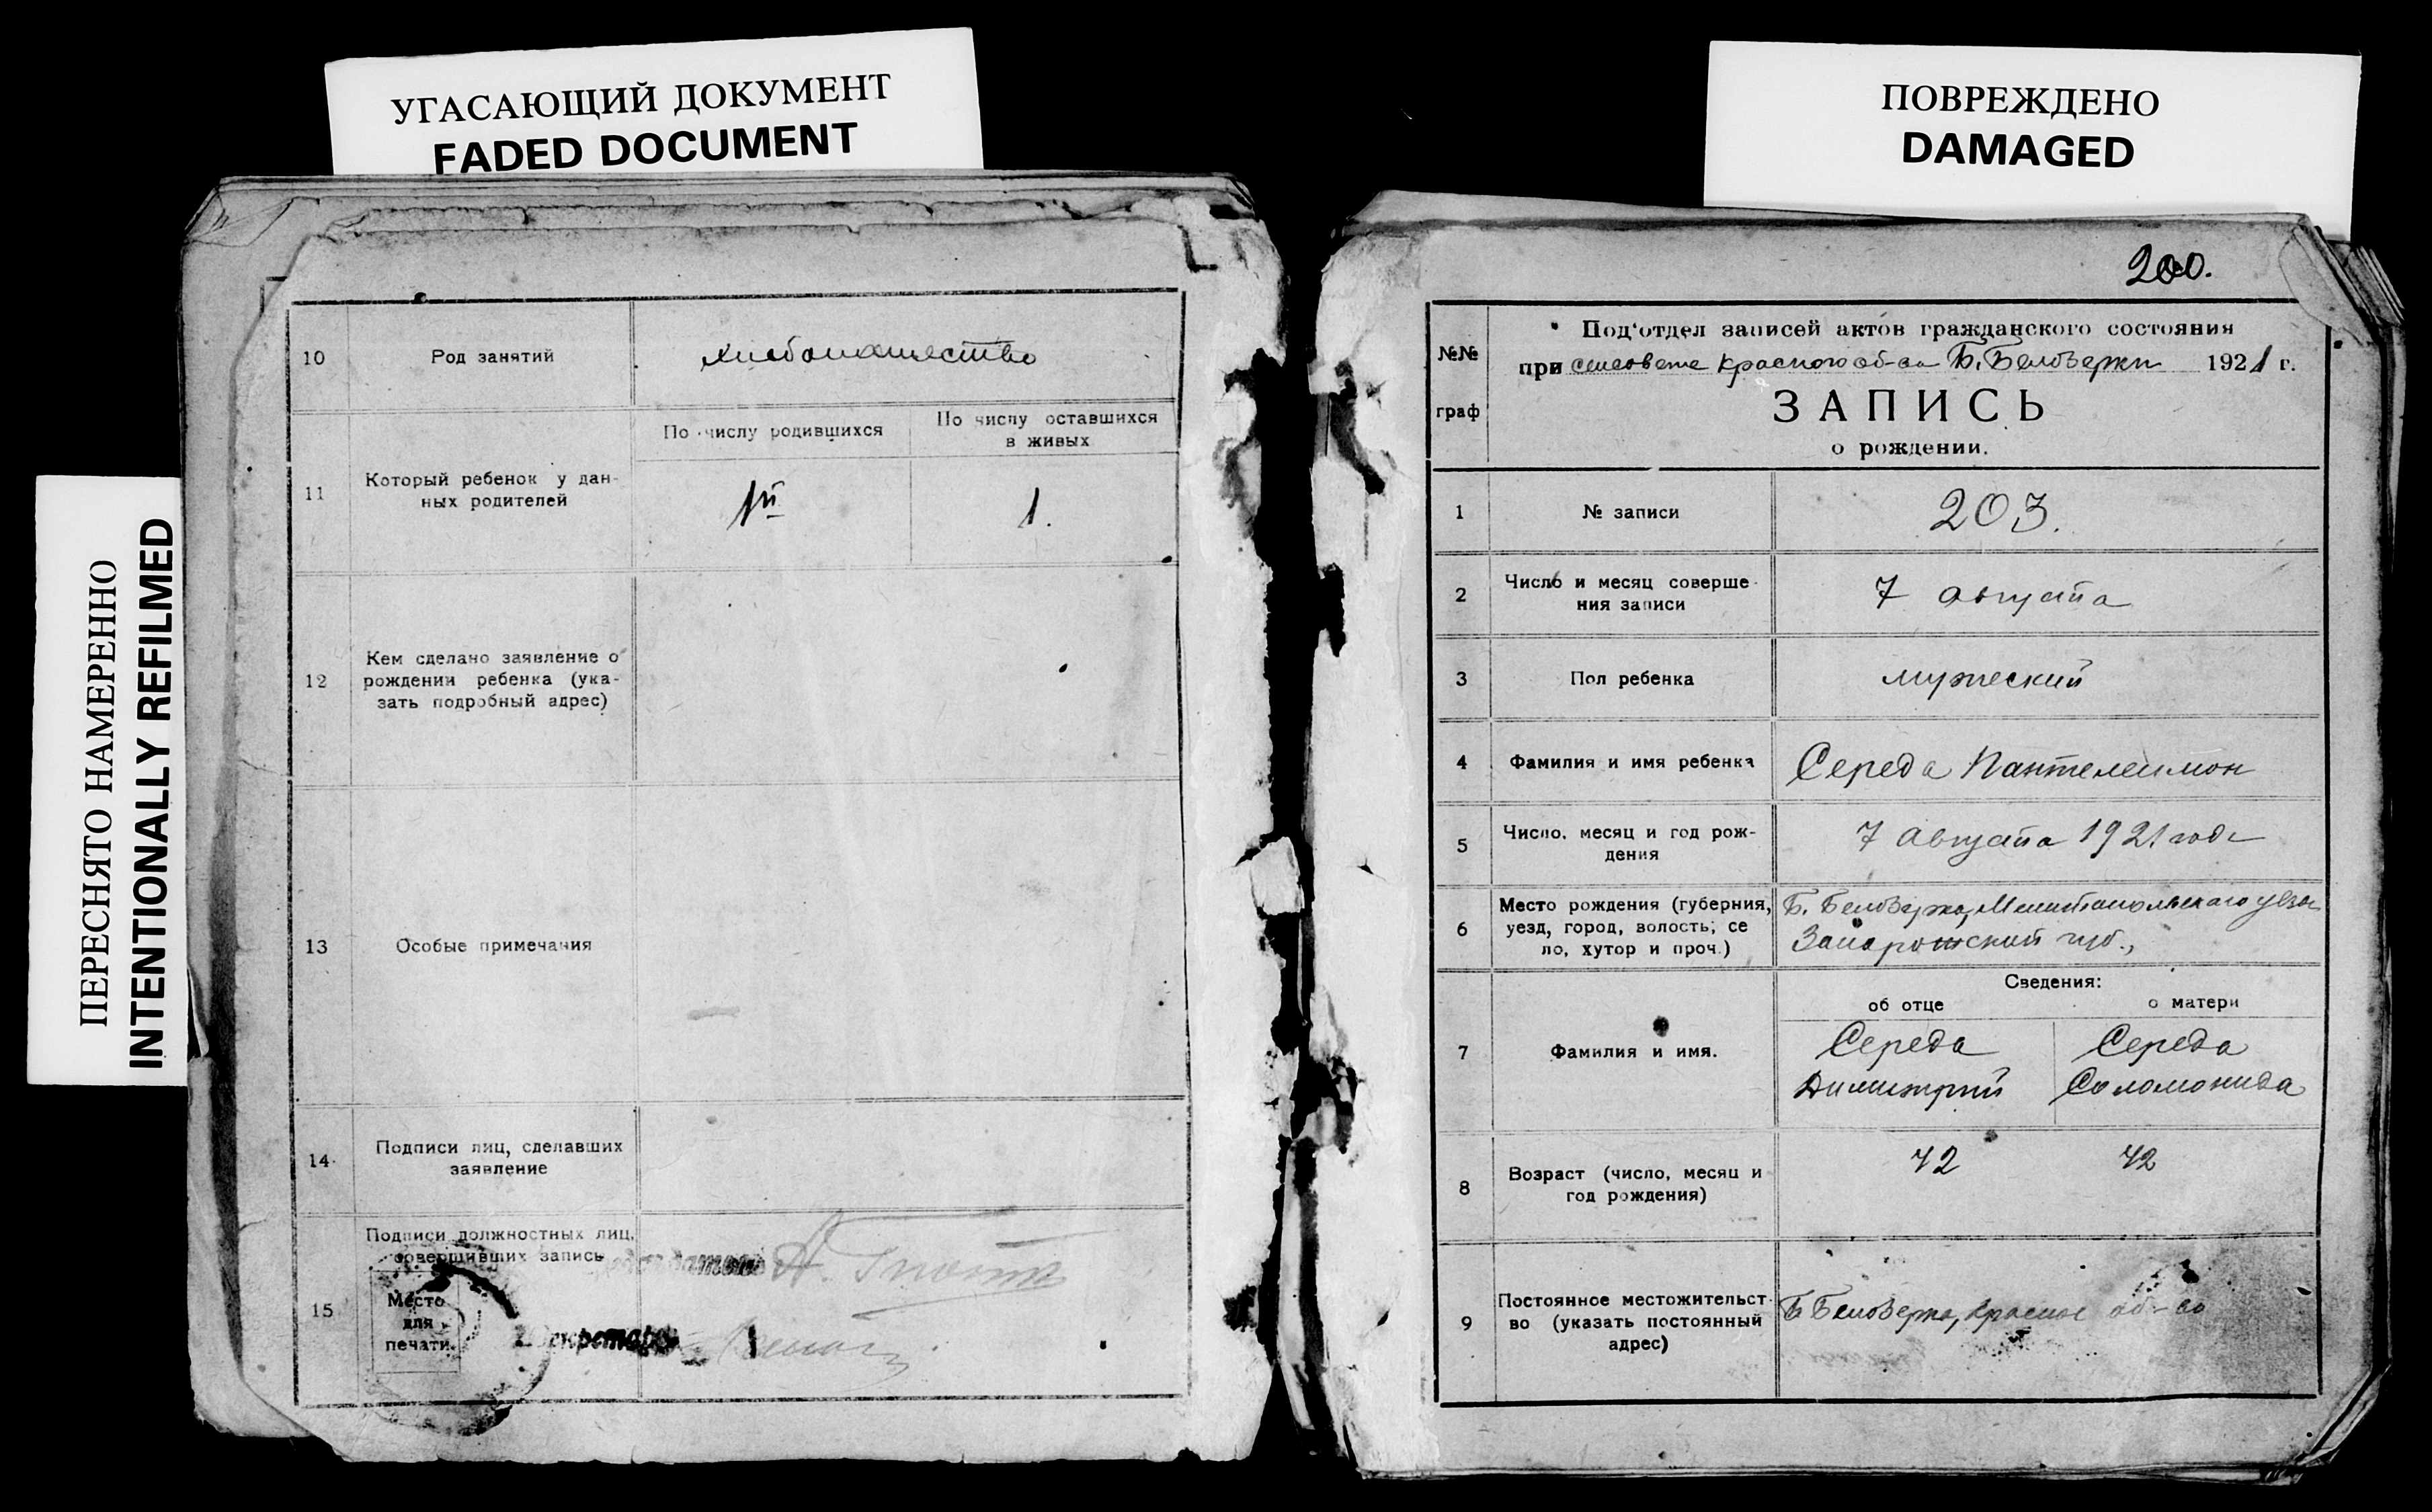 УГАСАЮЩИЙ ДОКУМЕНТ
FADED DOCUMENT
ПОВРЕЖДЕНО
DAMAGED
ПЕРЕСНЯТО НАМЕРЕННО
INTENTIONALLY REFILMED
10
Род занятий
хлебопашество
11
Который ребенок у дан-
ных родителей
По числу родившихся
По числу оставшихся
в живых
1й
1.
12
Кем сделано заявление о
рождении ребенка (ука-
зать подробный адрес)
13
Особые примечания
14
Подписи лиц, сделавших
заявление
15
Подписи должностных лиц,
совершивших запись
Место
для
печати.
Секретарь
200.
№№
граф
Под'отдел записей актов гражданского состояния
при сельсовете Красного об-ва Б. Белозерки 1921 г.
ЗАПИСЬ
о рождении.
1
№ записи
203.
2
Число и месяц соверше-
ния записи
7 августа
3
Пол ребенка
мужеский
4
Фамилия и имя ребенка
Середа Пантелеимон
5
Число, месяц и год рож-
дения
7 Августа 1921 года
6
Место рождения (губерния,
уезд, город, волость; се
ло, хутор и проч.)
Б. Белозерка, Мелитопольского уезда
Запорожский губ.,
Сведения:
об отце
о матери
7
Фамилия и имя.
Середа
Димитрий
Середа
Соломонида
8
Возраст (число, месяц и
год рождения)
42
42
9
Постоянное местожительст-
во (указать постоянный
адрес)
Б Белозерка, Красное об-во